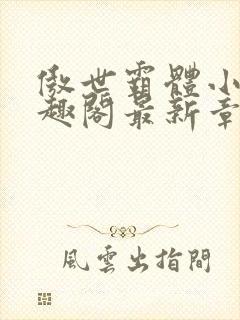 傲世霸體小
趣閣最新章
風雲出指間